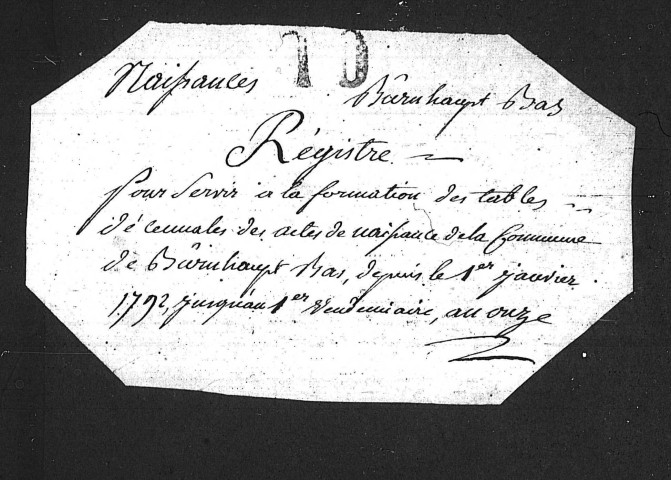 Naissances 10
Bürnhaupt Bas
Régistre
pour servir a la formation des tables
décennales des actes de naissance de la Commune
de Bürnhaupt Bas, depuis le 1er janvier
1792, jusqu'au 1er Vendemiaire, an onze